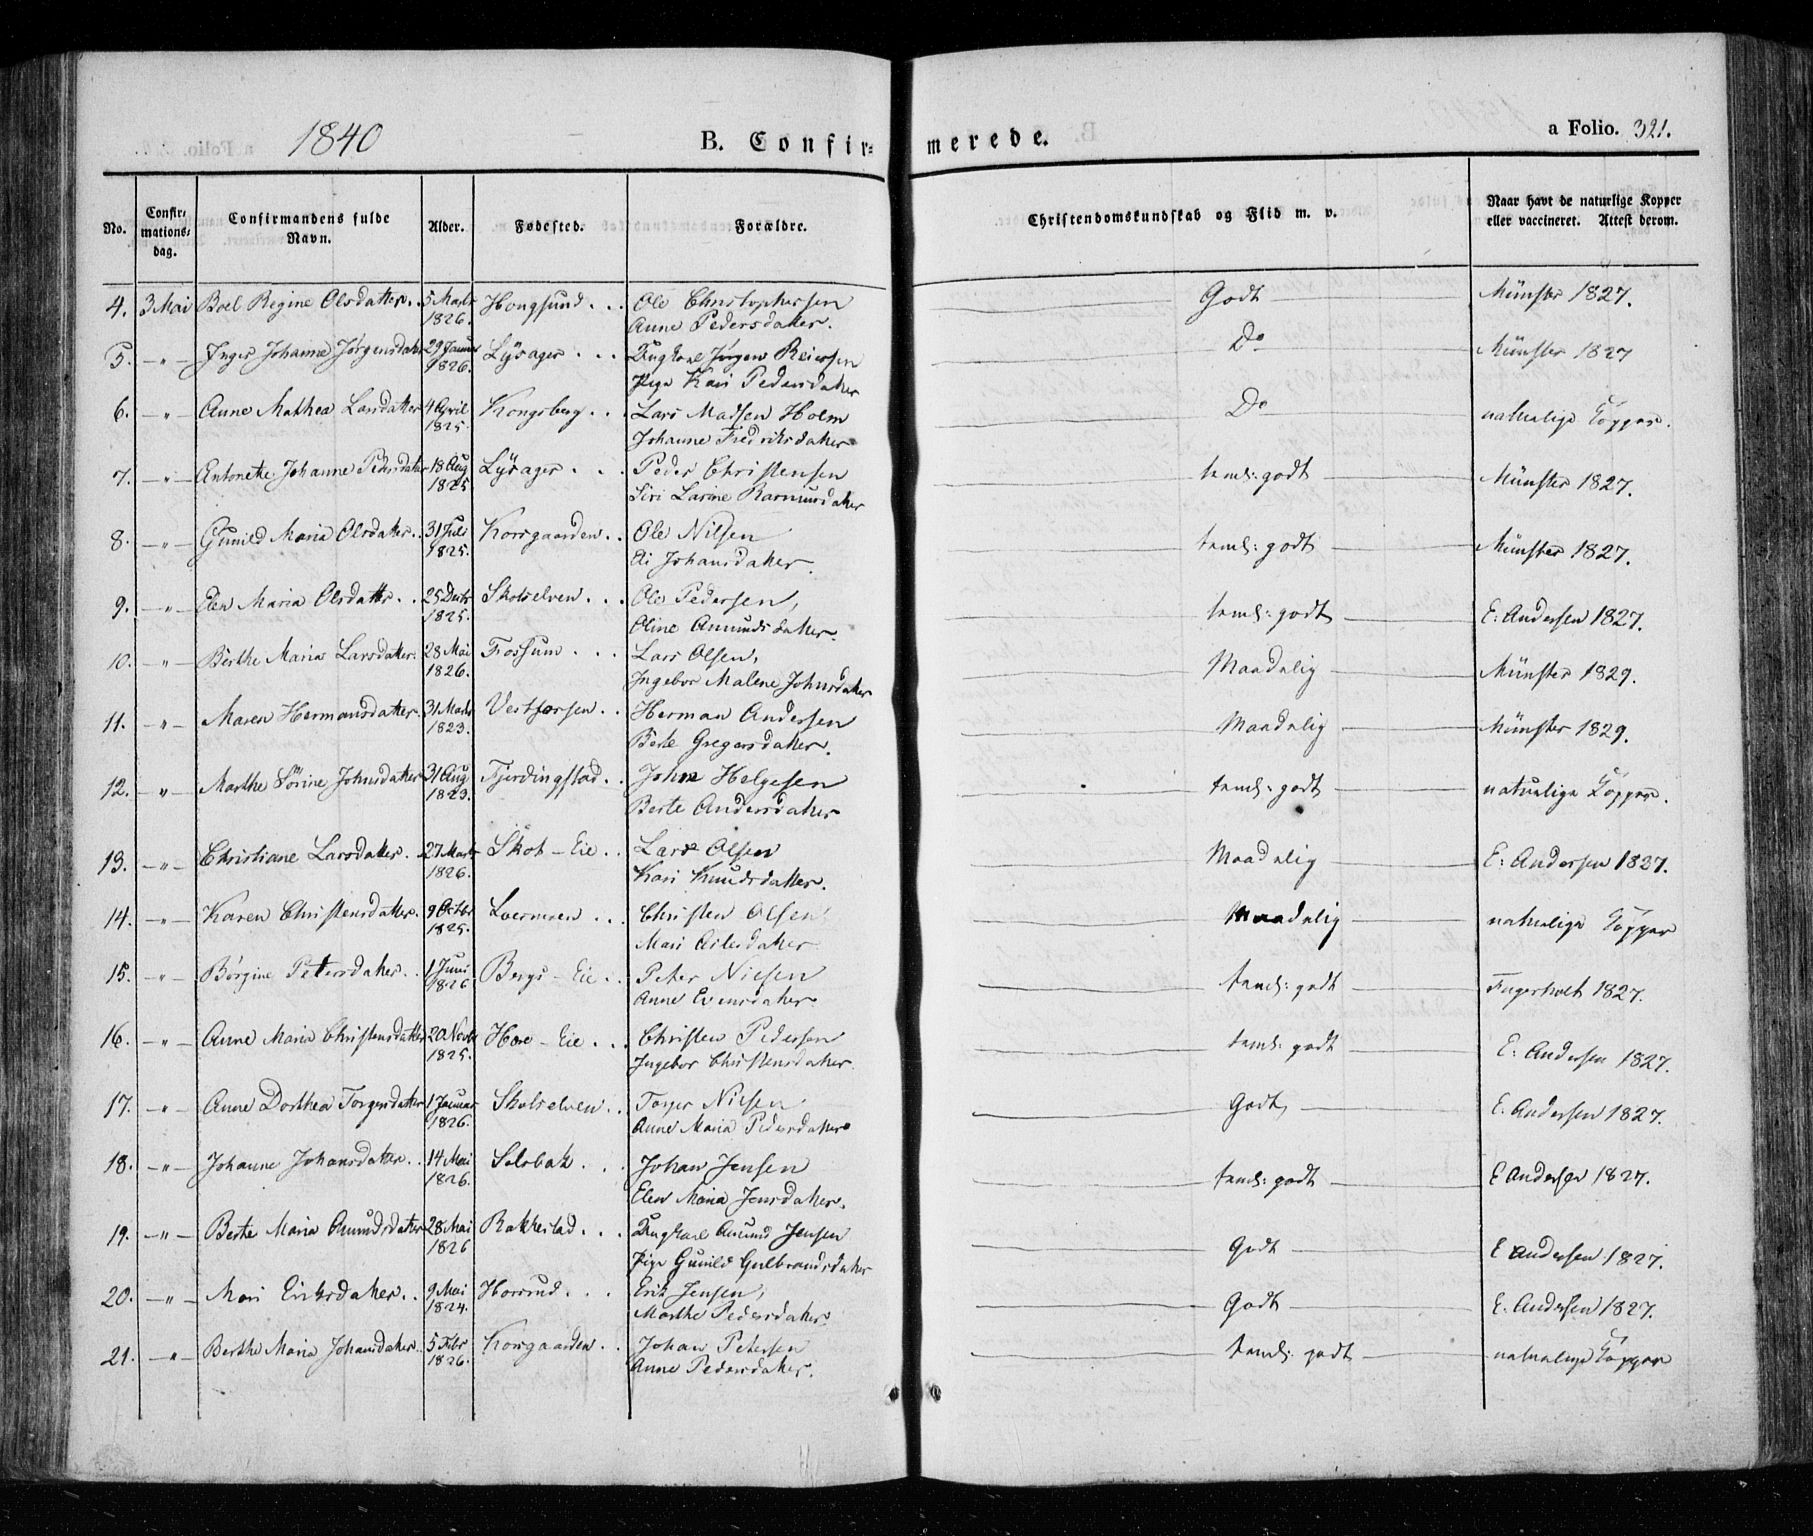 1840 B. Confir= merede. a Folio. 321.
No. Confir= mations= dag. Confirmandens fulde Navn. Alder. Fødested. Forældre. Christendomskundskab og Flid m. v. Naar havt de naturlige Kopper eller vaccineret. Attest derom.
4. 3 Mai Boel Regine Olsdatter. 5 Marts Hougsund. Ole Christophersen Godt Münster 1827.
1826. Anne Pedersdatter.
5. -"- Inger Johanne Jørgensdatter 29 Januar Lysager Ungkarl Jørgen Reiersen Do Münster 1827
1826. Pige Kari Pedersdatter
6. -"- Anne Mathea Larsdatter 4 April Kongsberg Lars Madsen Holm Do naturlige Kopper.
1825. Johanne Fredriksdatter
7. -"- Antonette Johanne Pedersdatter 18 Aug Lysager Peder Christensen teml: godt Münster 1827.
1825. Siri Larine Rasmusdatter
8. -"- Gunild Maria Olsdatter 31 Juli Korsgaarden Ole Nilsen teml: godt Münster 1827.
1825. Johansdatter.
9. -"- Elen Maria Olsdatter 25 Decbr Skotselven Ole Pedersen, teml: godt E: Andersen 1827.
1825. Oline Amundsdatter.
10. -"- Berthe Maria Larsdatter. 28 Mai Fossum Lars Olsen, Maadelig Münster 1829.
1826. Ingebor Malene Johnsdatter
11. -"- Maren Hermansdatter. 31 Marts Vestfossen Herman Andersen Maadelig Münster 1829.
1823. Berte Gregersdatter.
12. -"- Marthe Sörine Johnsdatter 31 Aug Fjerdingstad John Helgesen teml: godt naturlige Kopper.
1823. Berte Andersdatter
13. -"- Christiane Larsdatter. 27 Marts Skot-Eie Lars Olsen Maadelig E: Andersen 1827.
1826. Kari Knudsdatter.
14. -"- Karen Christensdatter. 9 Octbr Loesmoen Christen Olsen Maadelig naturlige Kopper
1825. Mari
15. -"- Børgine Petersdatter. 1 Juni Bergs-Eie Peter Nielsen teml: godt Fugerholt 1827.
1826 Anne Evensdatter
16. -"- Anne Maria Christensdatter 20 Novbr Hore-Eie Christen Pedersen teml: godt E: Andersen 1827.
1825. Ingebor Christensdatter.
17. -"- Anne Dorthea Torgersdatter 1 Januar Skotselven Torger Nielsen Godt E. Andersen 1827.
1826. Anne Maria Pedersdatter
18. -"- Johanne Johansdatter 14 Mai Selsbak Johan Jensen teml: godt E Andersen 1827.
1826. Elen Maria Jensdatter.
19. -"- Berte Maria Amundsdatter 28 Mai Rakkestad Ungkarl Amund Jensen Godt E Andersen 1827.
1826 Pige Gunild Gulbrandsdatter
20. -"- Mari Eriksdatter. 9 Mai Horsrud Erik Jensen, Godt E: Andersen 1827.
1824. Marthe Pedersdatter.
21. -"- Berthe Maria Johansdatter 5 Febr Korsgaarden Johan Petersen teml: godt naturlige Kopper
1826. Anne Pedersdatter.